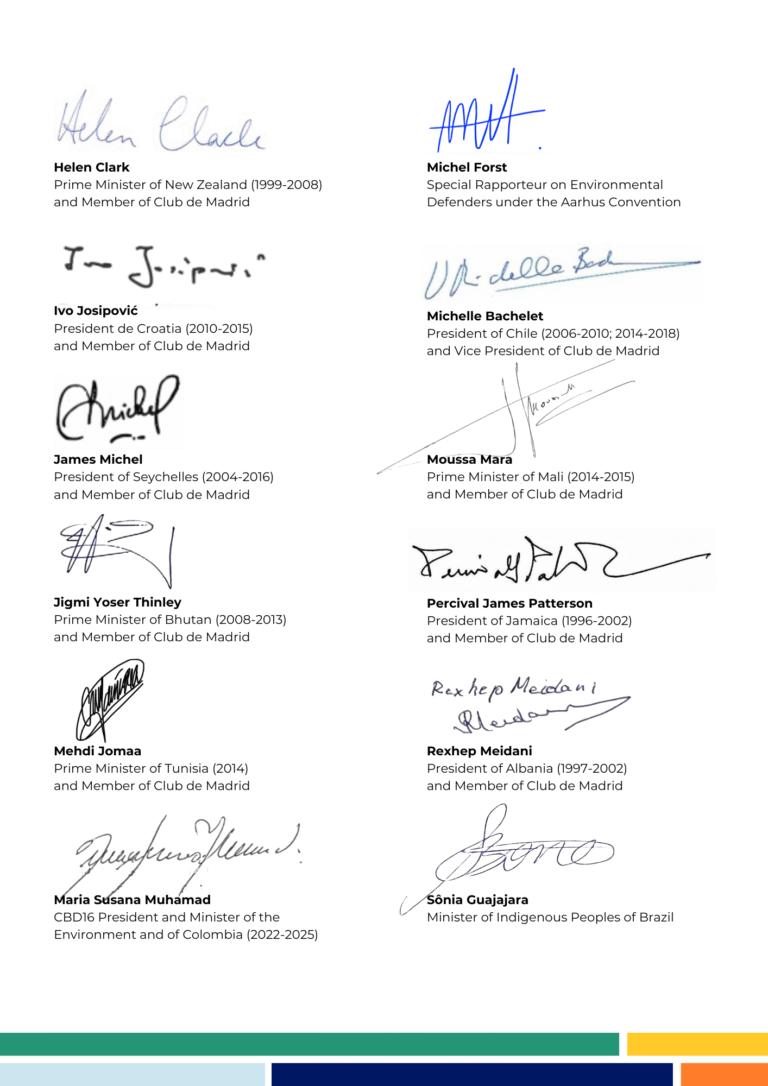 Helen Clark
Helen Clark
Prime Minister of New Zealand (1999-2008)
and Member of Club de Madrid
Michel Forst
Special Rapporteur on Environmental
Defenders under the Aarhus Convention
Ivo Josipović
President de Croatia (2010-2015)
and Member of Club de Madrid
Michelle Bachelet
President of Chile (2006-2010; 2014-2018)
and Vice President of Club de Madrid
James Michel
President of Seychelles (2004-2016)
and Member of Club de Madrid
Moussa Mara
Prime Minister of Mali (2014-2015)
and Member of Club de Madrid
Jigmi Yoser Thinley
Prime Minister of Bhutan (2008-2013)
and Member of Club de Madrid
Percival James Patterson
President of Jamaica (1996-2002)
and Member of Club de Madrid
Mehdi Jomaa
Prime Minister of Tunisia (2014)
and Member of Club de Madrid
Rexhep Meidani
Rexhep Meidani
President of Albania (1997-2002)
and Member of Club de Madrid
Maria Susana Muhamad
CBD16 President and Minister of the
Environment and of Colombia (2022-2025)
Sônia Guajajara
Minister of Indigenous Peoples of Brazil